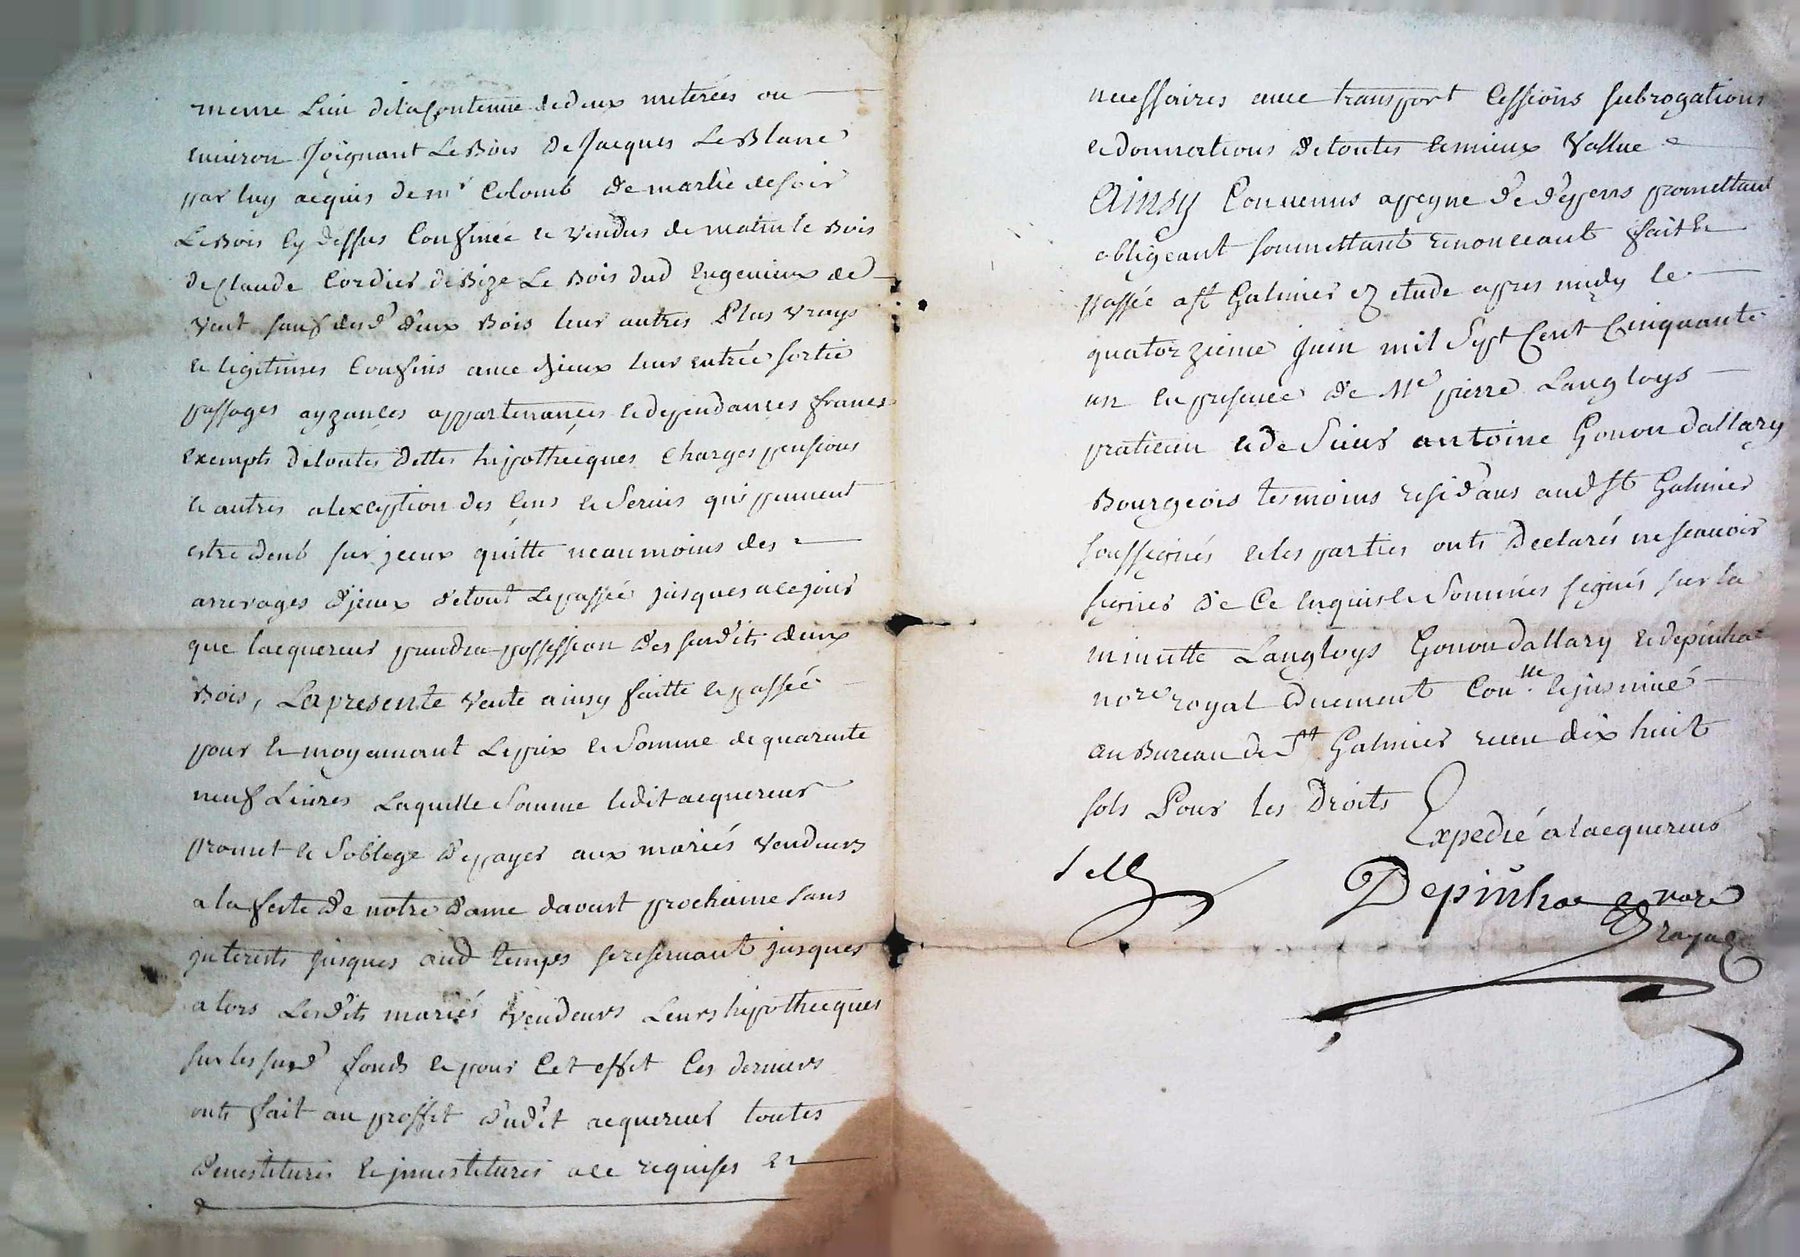 meme Lieu delaContenue de deux meterées ou
environ Joignant Le Bois de Jacques Le Blanc
par luy acquis de mr Colomb de marlie de soir
Le Bois cy dessus Confinée et vendus de matin le Bois
de Claude Cordier de Bize Le Bois dud Eugenieux de
vent sauf desd deux Bois leur autres Plus vrays
et legitimes Confins avec jceux leur entrée sortie
passages ayzances appartenances et dependances francs
exempts de toutes Dettes hipothecques Charges pensions
et autres alexception des Cens et Servis qui peuvent
estre deub sur jceux quitte neaumoins des
arrerages djceux de tout Le passée jusques a ce jour
que lacquereur prendra possession des susdits deux
Bois, La presente Vente ainsy faitte et passée
pour et moyennant Le prix et Somme de quarente
neuf Livres Laquelle Somme ledit acquereur
promet et Soblege de payer aux mariés vendeurs
a la feste de notre dame davoust prochaine sans
jnterests jusques aud temps se reservant jusques
alors Lesdits mariés vendeurs Leurs hipothecques
sur les susd fonds et pour Cet effet Ces derniers
onts fait au proffit dudit acquereur toutes
devestitures et jnvestitures a ce requises et
necessaires avec transport Cessions subrogations
et donnations de toutes et mieux Vallue
Ainsy Convenus a peyne de depens promettant
obligeant soumettant renonceant fait et
passée a St Galmier ez etude apres midy le
quatorzieme juin mil Sept Cent Cinquante
un en presence de Me pierre Langloys
praticien et de Sieur antoine Gonon dallary
Bourgeois tesmoins residans aud St Galmier
soussignés et les parties onts Declarés ne scavoir
signer de Ce enquis et Sommés signés sur la
minutte Langloys Gonon dallary et depinhac
nore royal duement Conlle et jnsinué
au Bureau de St Galmier receu dix huit
sols Pour les Droits
Expedié a lacquereur
Depinhac nore
royal